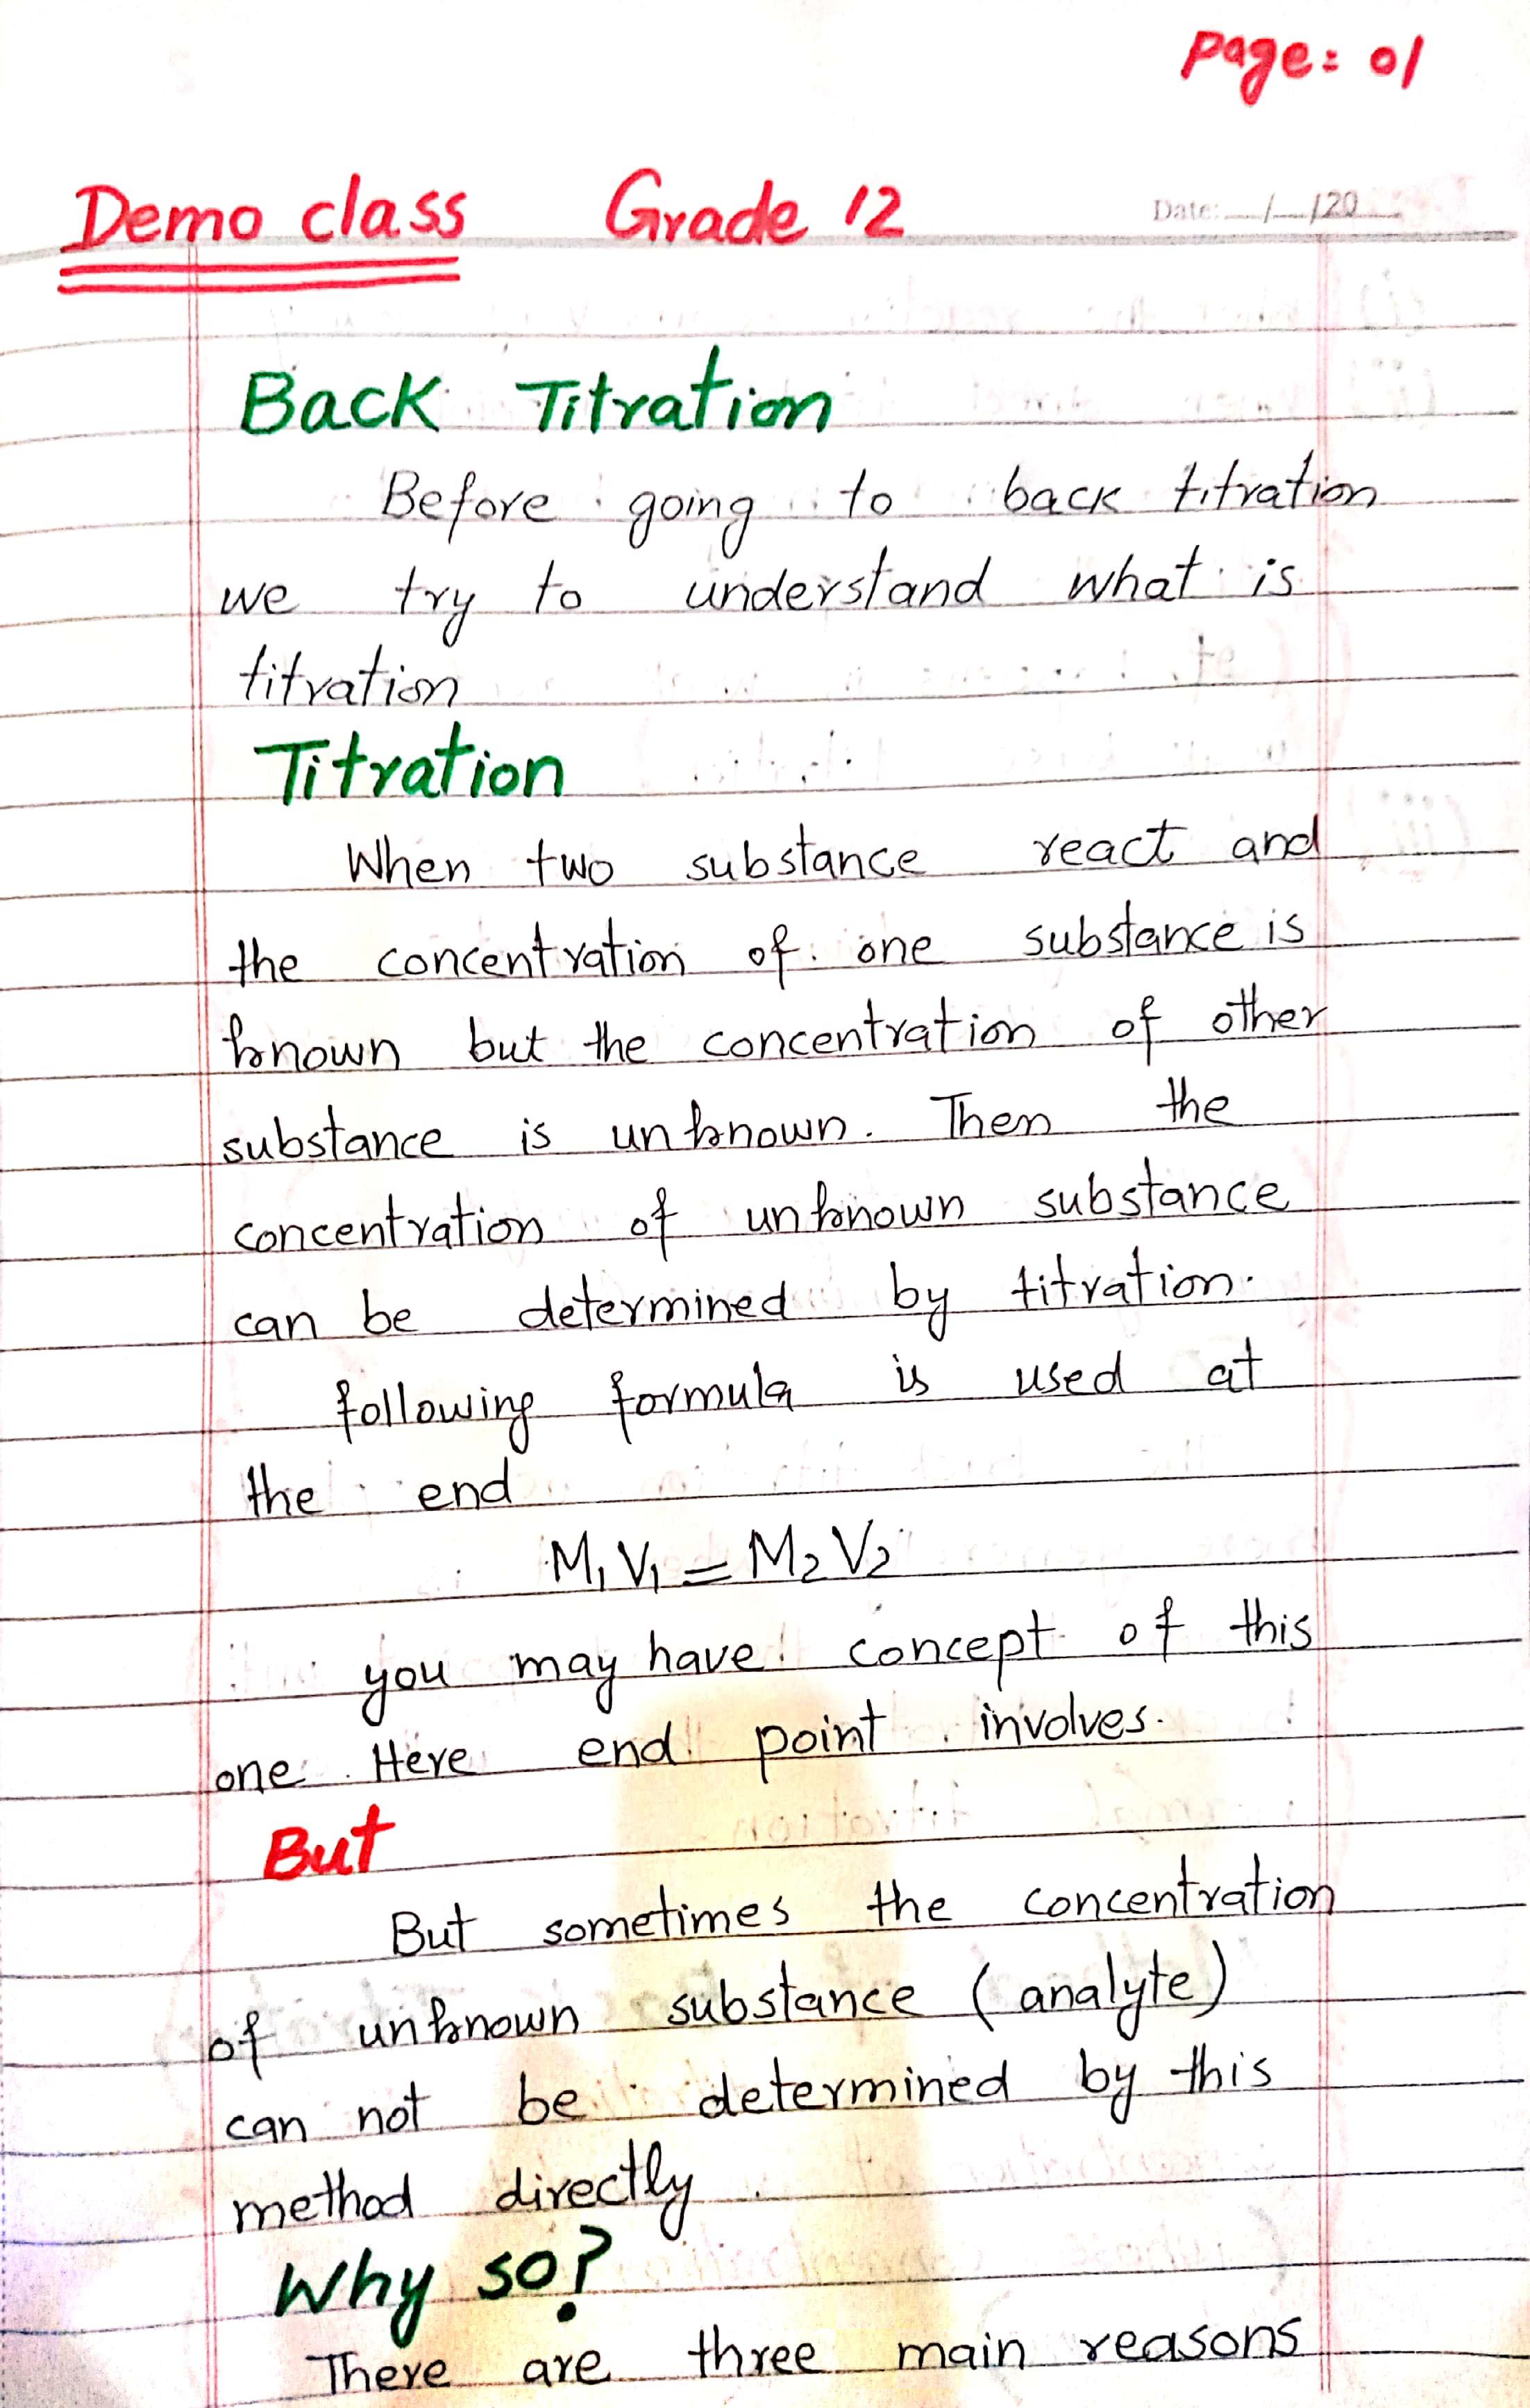 Page: 01
Demo class Grade 12
Date: / /20
Back Titration
Before going to back titration
we try to understand what is
titration
Titration
When two substance react and
the concentration of one substance is
known but the concentration of other
substance is unknown. Then the
concentration of unknown substance
can be determined by titration.
following formula is used at
the end
M₁V₁ = M₂V₂
you may have concept of this
one. Here end point involves.
But
But sometimes the concentration
of unknown substance (analyte)
can not be determined by this
method directly.
Why so?
There are three main reasons